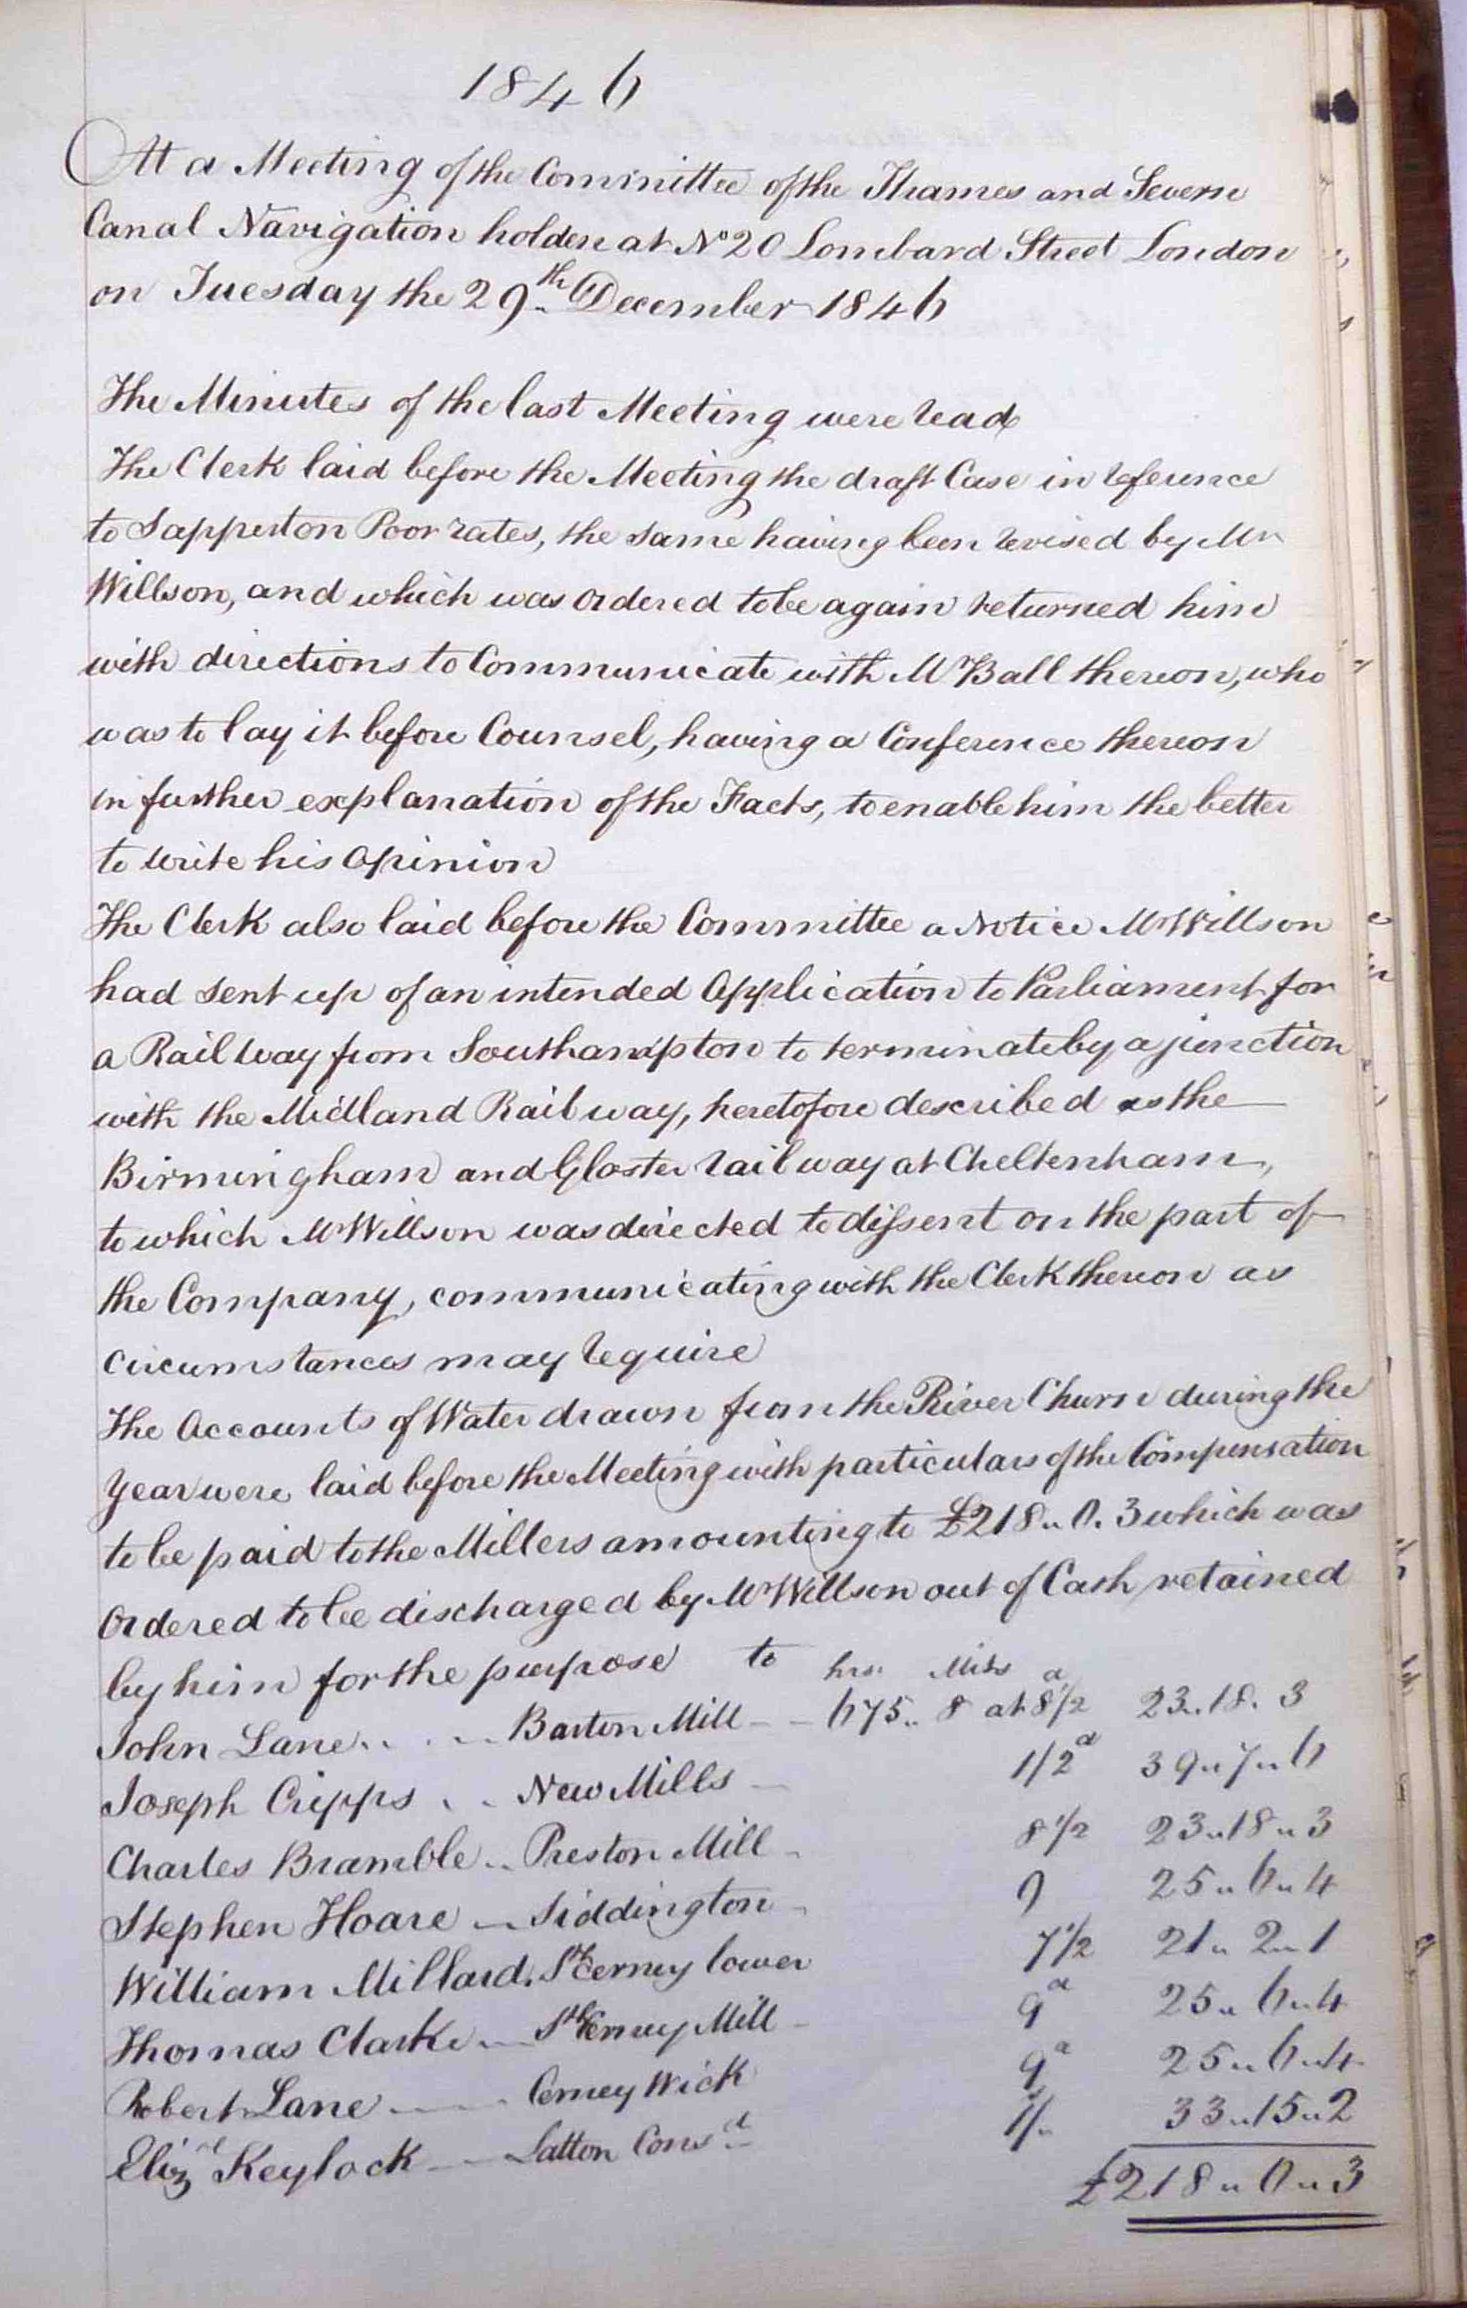 1846
At a Meeting of the Committee of the Thames and Severn
Canal Navigation holden at No 20 Lombard Street London
on Tuesday the 29th December 1846
The Minutes of the last Meeting were read
The Clerk laid before the Meeting the draft Case in reference
to Sapperton Poor rates, the same having been revised by Mr
Willson, and which was ordered to be again returned him
with directions to Communicate with Mr Ball thereon, who
was to lay it before Counsel, having a Conference thereon
in further explanation of the Facts, to enable him the better
to write his Opinion
The Clerk also laid before the Committee a Notice Mr Willson
had sent up of an intended Application to Parliament for
a Railway from Southampton to terminate by a junction
with the Midland Railway, heretofore described as the
Birmingham and Gloster railway at Cheltenham,
to which Mr Willson was directed to dissent on the part of
the Company, communicating with the Clerk thereon as
circumstances may require
The Accounts of Water drawn from the River Churn during the
Year were laid before the Meeting with particulars of the Compensation
to be paid to the Millers amounting to £218 " 0 . 3 which was
Ordered to be discharged by Mr Willson out of Cash retained
by him for the purpose to hrs. Mits
John Lane . . . . Barton Mill - - 675 " 8 at 8 1/2 d 23 " 18 . 3
Joseph Cripps . . New Mills - 1/2 d 39 " 7 " 6
Charles Bramble .. Preston Mill - 8 1/2 23 " 18 " 3
Stephen Hoare - Siddington - 9 25 " 6 " 4
William Millard . Sth Cerney lower 7 1/2 21 " 2 " 1
Thomas Clarke - Sth Cerney Mill - 9 d 25 " 6 " 4
Robert Lane - - Cerney Wick 9 d 25 " 6 " 4
Elizth Keylock - - Latton Consd 1/- 33 " 15 " 2
£218 " 0 " 3